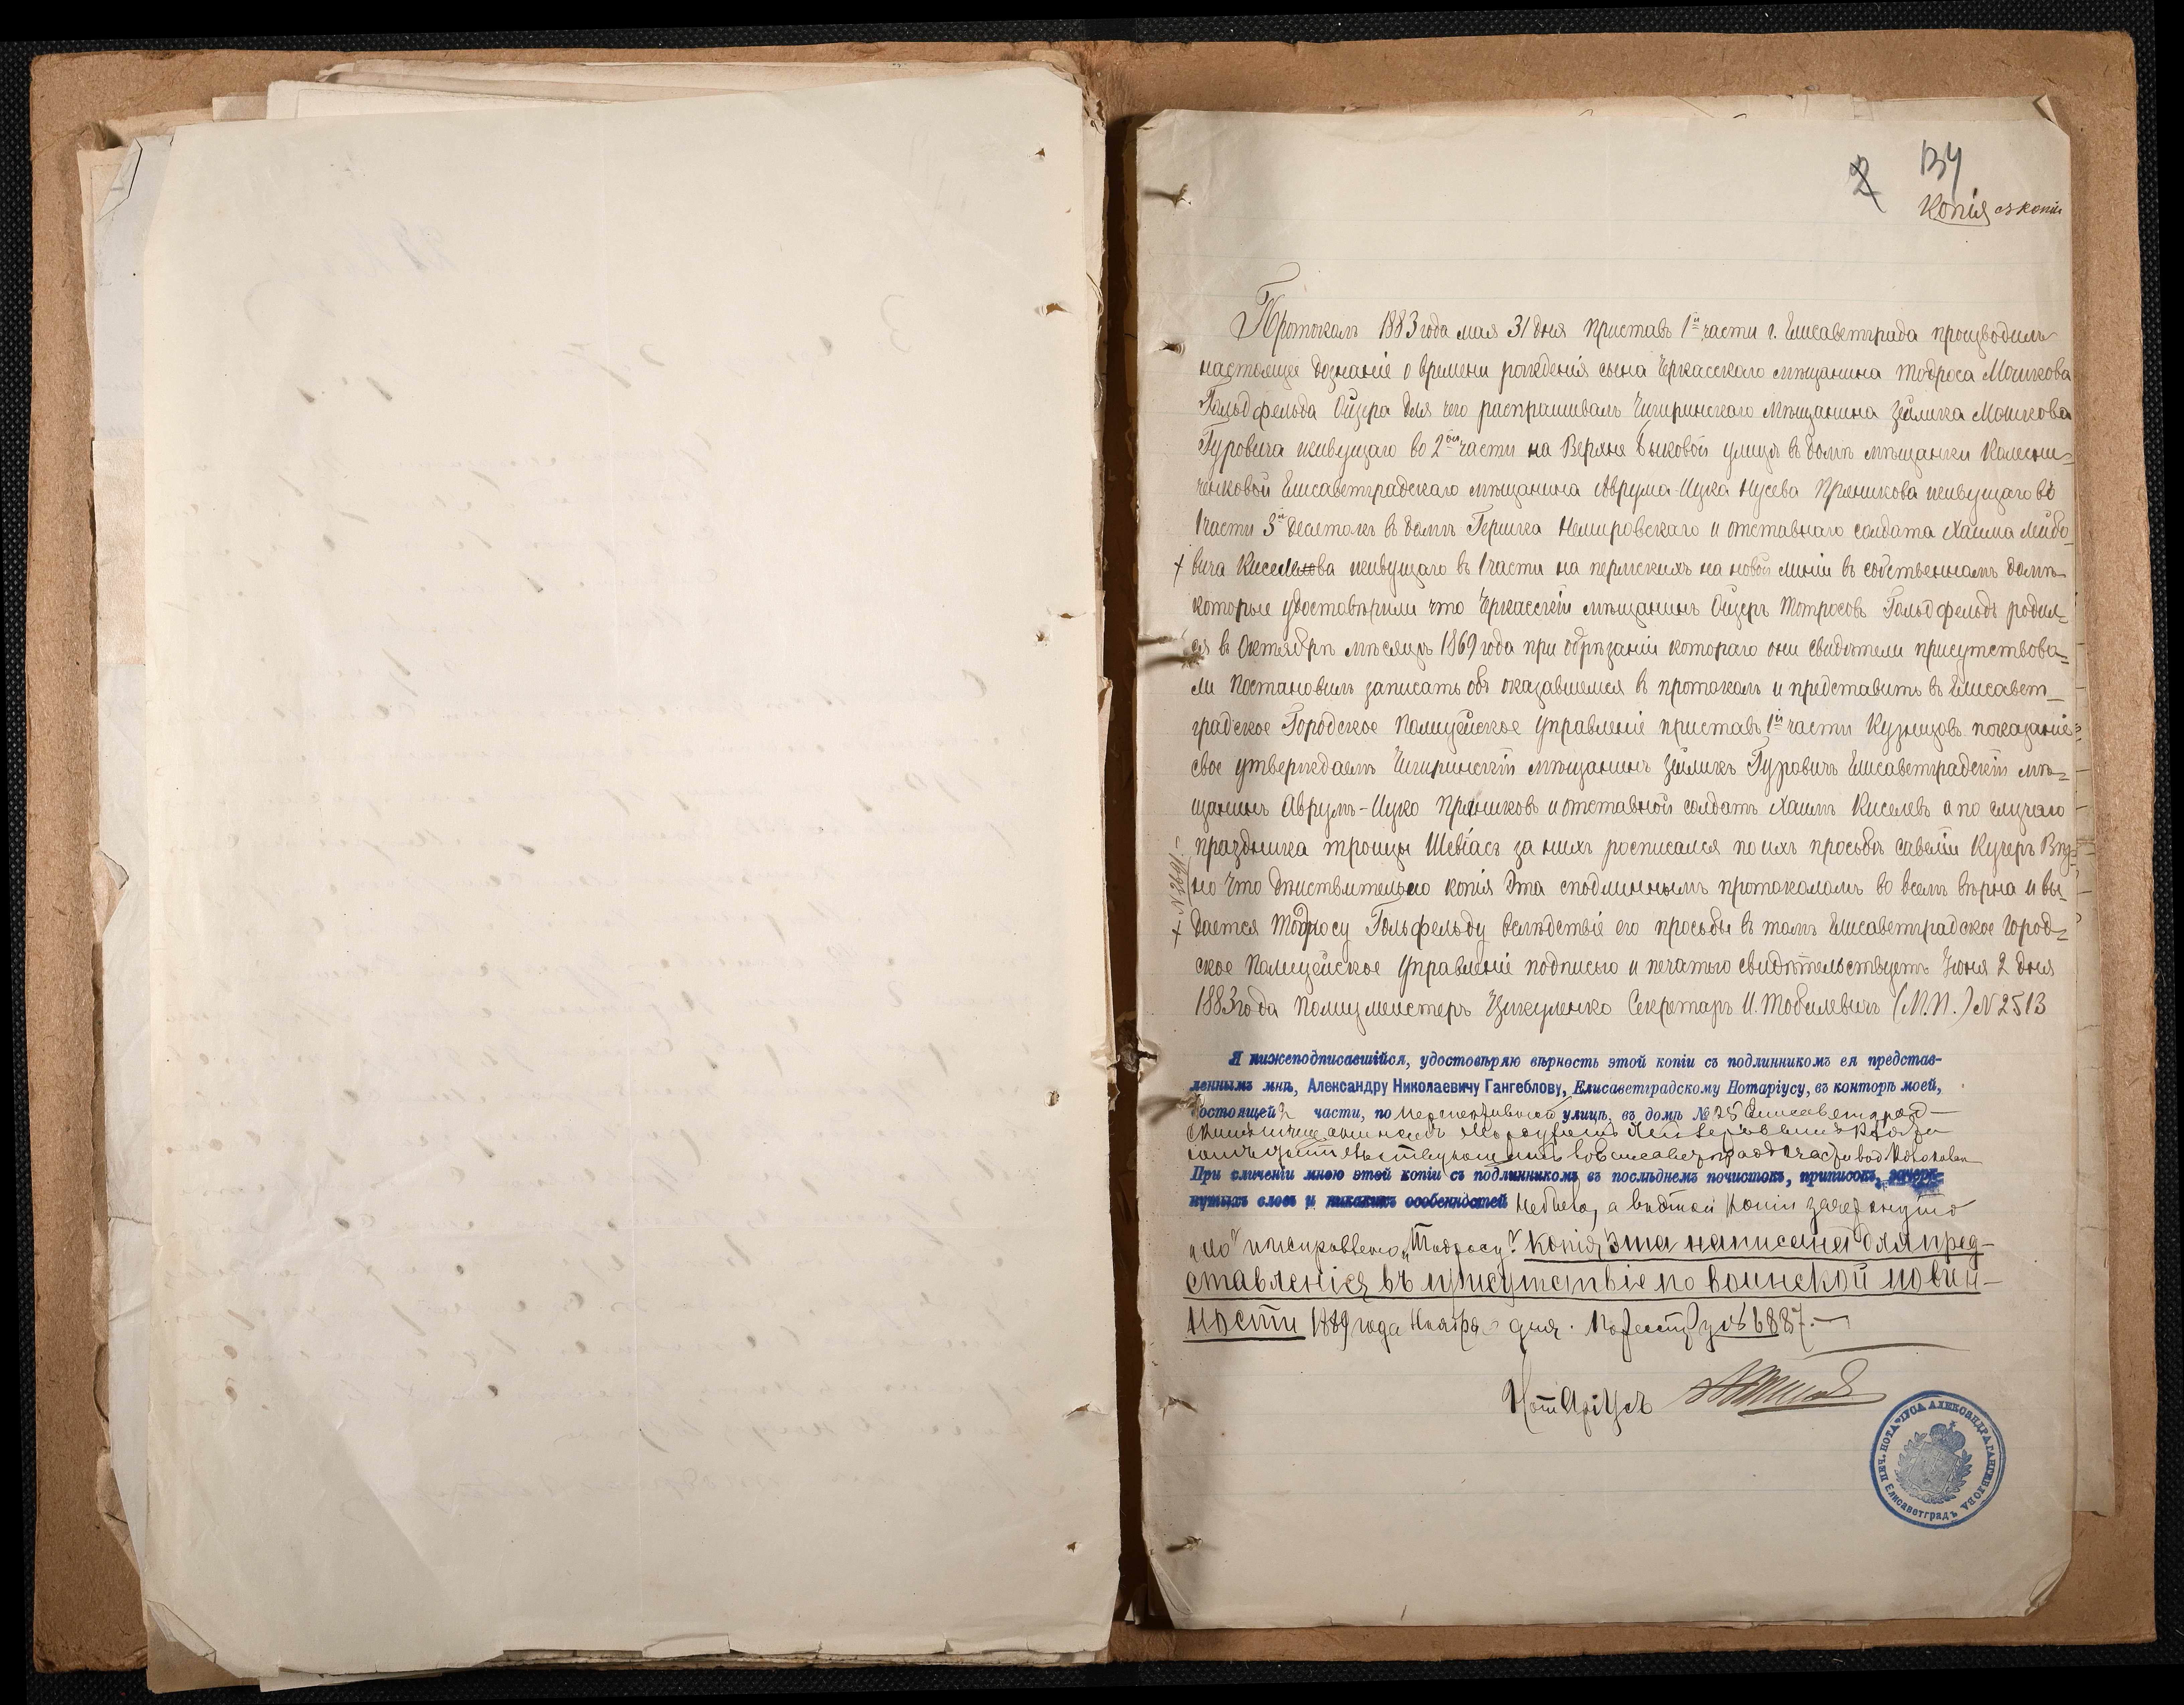 134
2
Копія съ копіи
Протоколъ 1883 года мая 31 дня Приставъ 1й части г. Елисаветграда производилъ
настоящее дознаніе о времени рожденія сына Черкасскаго мѣщанина Тодроса Мошкова
Гольдфельда Ойзера для чего распрашивалъ Чигиринскаго мѣщанина Зейлика Мошкова
Гуровича живущаго во 2ой части на Верхне Быковой улицѣ въ домѣ мѣщанки Колесни=
ченковой Елисаветградскаго мѣщанина Аврума-Ицка Нусева Пряникова живущаго въ
1 части 3й десятокъ въ домѣ Гершка Немировскаго и отставнаго солдата Хаима Лейбо-
+ вича Киселькова живущаго въ 1 части на пермскихъ на новой линіи въ собственномъ домѣ
которые удостовѣрили что Черкасскій мѣщанинъ Ойзеръ Тотросовъ Гольдфельдъ родил=
ся въ Октябрѣ мѣсяцѣ 1869 года при обрѣзаніи котораго они свидѣтели присутствова=
ли Постановилъ записать объ оказавшемся въ протоколъ и представить въ Елисавет_
градское Городское Полицейское Управленіе приставъ 1й части Кузнецовъ показаніе
свое утверждаемъ Чигиринскій мѣщанинъ Зейликъ Гуровичъ Елисаветградскій мѣ=
щанинъ Аврумъ-Ицко Пряниковъ и отставной солдатъ Хаимъ Киселевъ а по случаю
праздника троицы Шевіасъ за нихъ росписался по ихъ просьбѣ Савелій Кучеръ Вѣр=
но что дѣиствительно копія эта сподлиннымъ протоколомъ во всемъ вѣрна и вы-
+ дается Тодросу Гольфельду вслѣдствіе его просьбы въ томъ Елисаветградское Город=
ское Полицейское Управленіе подписью и печатью свидѣтельствуетъ Іюня 2 дня
1883 года Полицмейстеръ Цикуленко Секретарь И. Тобилевичъ (М.П.) N 2513
Я нижеподписавшійся, удостовѣряю вѣрность этой копіи съ подлинникомъ ея представ-
леннымъ мнѣ, Александру Николаевичу Гангеблову, Елисаветградскому Нотаріусу, въ конторѣ моей,
состоящей 2 части, по Перспективной улицѣ, въ домѣ № 25 Елисаветград-
При сличеніи мною этой копіи съ подлинникомъ въ послѣднемъ почистокъ, приписокъ, зачерк-
нутыхъ словъ и никакихъ особенностей небыло, а въ этой копіи зачеркнуто
„ко" и исправлено „Тодросу". Копія эта написана для пред-
ставленія въ присутствіе по воинской повин-
ности 1889 года Ноября дня. По реестру № 6887.
Нотаріусъ
ПЕЧ. НОТАРІУСА АЛЕКСАНДРА ГАНГЕБЛОВА
Елисаветградъ